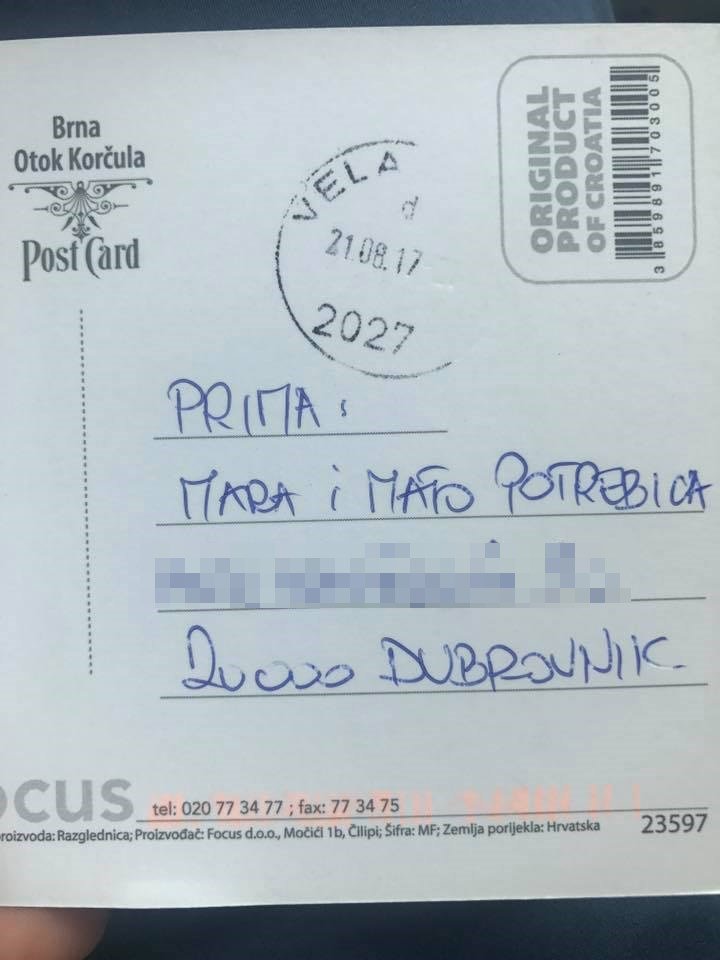 Brna
Otok Korčula
Post Card
ORIGINAL
PRODUCT
OF CROATIA
3859891703005
VELA
d
21.08.17
2027
PRIMA:
MARA i MATO POTREBICA
20000 DUBROVNIK
OCUS
tel: 020 77 34 77 ; fax: 77 34 75
roizvoda: Razglednica; Proizvođač: Focus d.o.o., Močići 1b, Čilipi; Šifra: MF; Zemlja porijekla: Hrvatska
23597